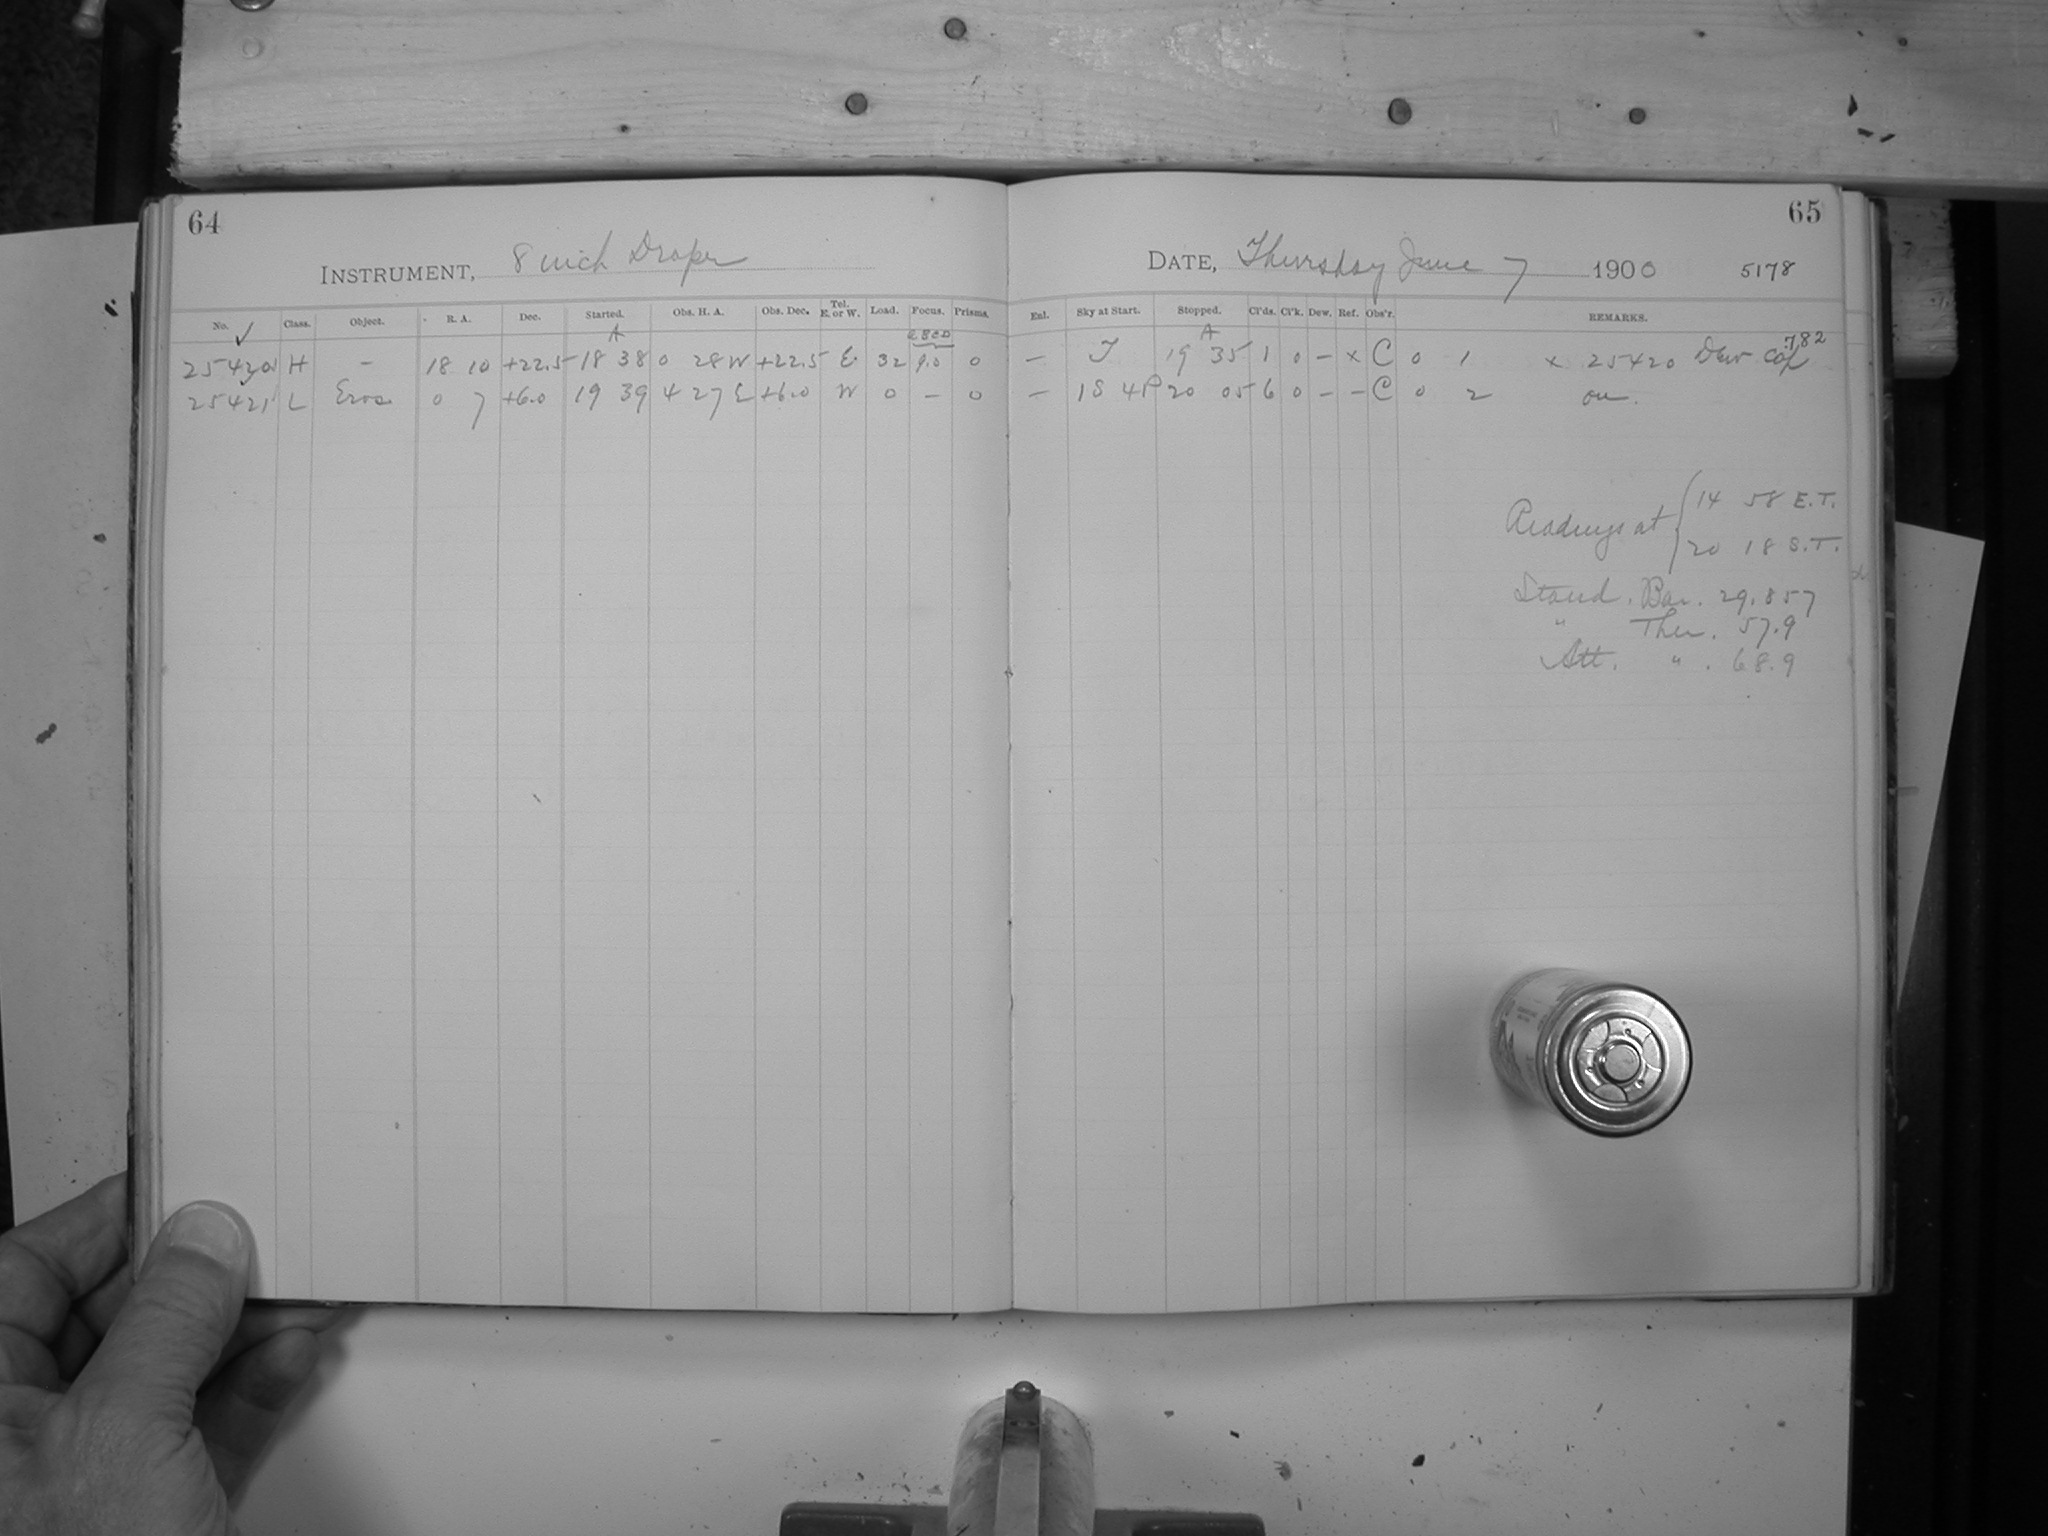 64
INSTRUMENT, 8 inch Draper
No. ✓ Class. Object. R. A. Dec. Started. Obs. H. A. Obs. Dec. Tel. E. or W. Load. Focus. Prisms.
A
25420 H – 18 10 +22.5 18 38 0 28 W +22.5 E 32 9.0 0
25421 L Eros 0 7 +6.0 19 39 4 27 E +6.0 W 0 – 0
65
DATE, Thursday June 7 1900 5178
Enl. Sky at Start. Stopped. Cl'ds. Cl'k. Dew. Ref. Obs'r. REMARKS.
A
782
– 19 35 1 0 – x C 0 1 x 25420 Dew cap
– 18 4P 20 05 6 0 – – C 0 2 on.
Readings at { 14 58 E.T.
20 18 S.T.
Stand. Bar. 29.857
" Ther. 57.9
Att. " . 68.9